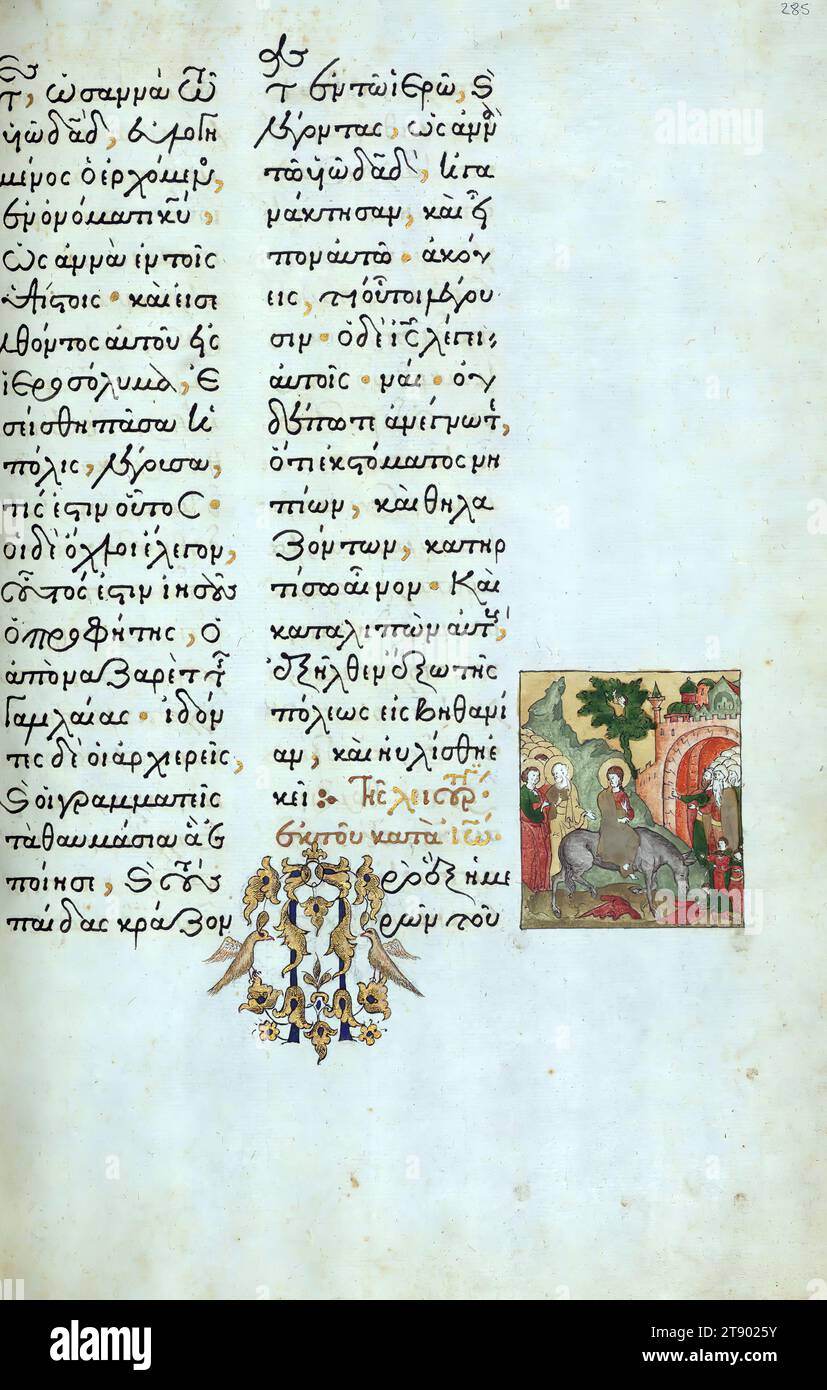 285
τ, ὡσαννὰ τῶ
υἱῶ δαδ, εὐλογη
μένος ὁ ἐρχόμενος,
ἐν ὀνόματι κυ,
ὡσαννὰ ἐν τοῖς
ὑψίστοις · καὶ εἰσελ
θόντος αὐτοῦ εἰς
ἱεροσόλυμα, ἐ
σείσθη πᾶσα ἡ
πόλις, λέγουσα,
τίς ἐστιν οὗτος ·
οἱ δὲ ὄχλοι ἔλεγον,
οὗτός ἐστιν ἰησοῦς
ὁ προφήτης, ὁ
ἀπὸ ναζαρὲτ τῆς
γαλιλαίας · ἰδόν
τες δὲ οἱ ἀρχιερεῖς,
καὶ οἱ γραμματεῖς
τὰ θαυμάσια ἃ ἐ
ποίησε, καὶ τοὺς
παῖδας κράζον
τας ἐν τῶ ἱερῶ, καὶ
λέγοντας, ὡσαννὰ
τῶ υἱῶ δαδ, ἠγα
νάκτησαν, καὶ εἶ
πον αὐτῶ · ἀκού
εις, τί οὗτοι λέγου
σιν · ὁ δὲ ις λέγει
αὐτοῖς · ναί · οὐ
δέποτε ἀνέγνωτε,
ὅτι ἐκ στόματος νη
πίων, καὶ θηλα
ζόντων, κατηρ
τίσω αἶνον · Καὶ
καταλιπὼν αὐτοὺς,
ἐξῆλθεν ἔξω τῆς
πόλεως εἰς βηθανί
αν, καὶ ηὐλίσθη ἐ
κεῖ : Τῆς λειτουρ
ἐκ τοῦ κατὰ ἰω
Πρὸ ἓξ ἡμε
ρῶν τοῦ
alamy
Image ID: 2T9025Y
www.alamy.com